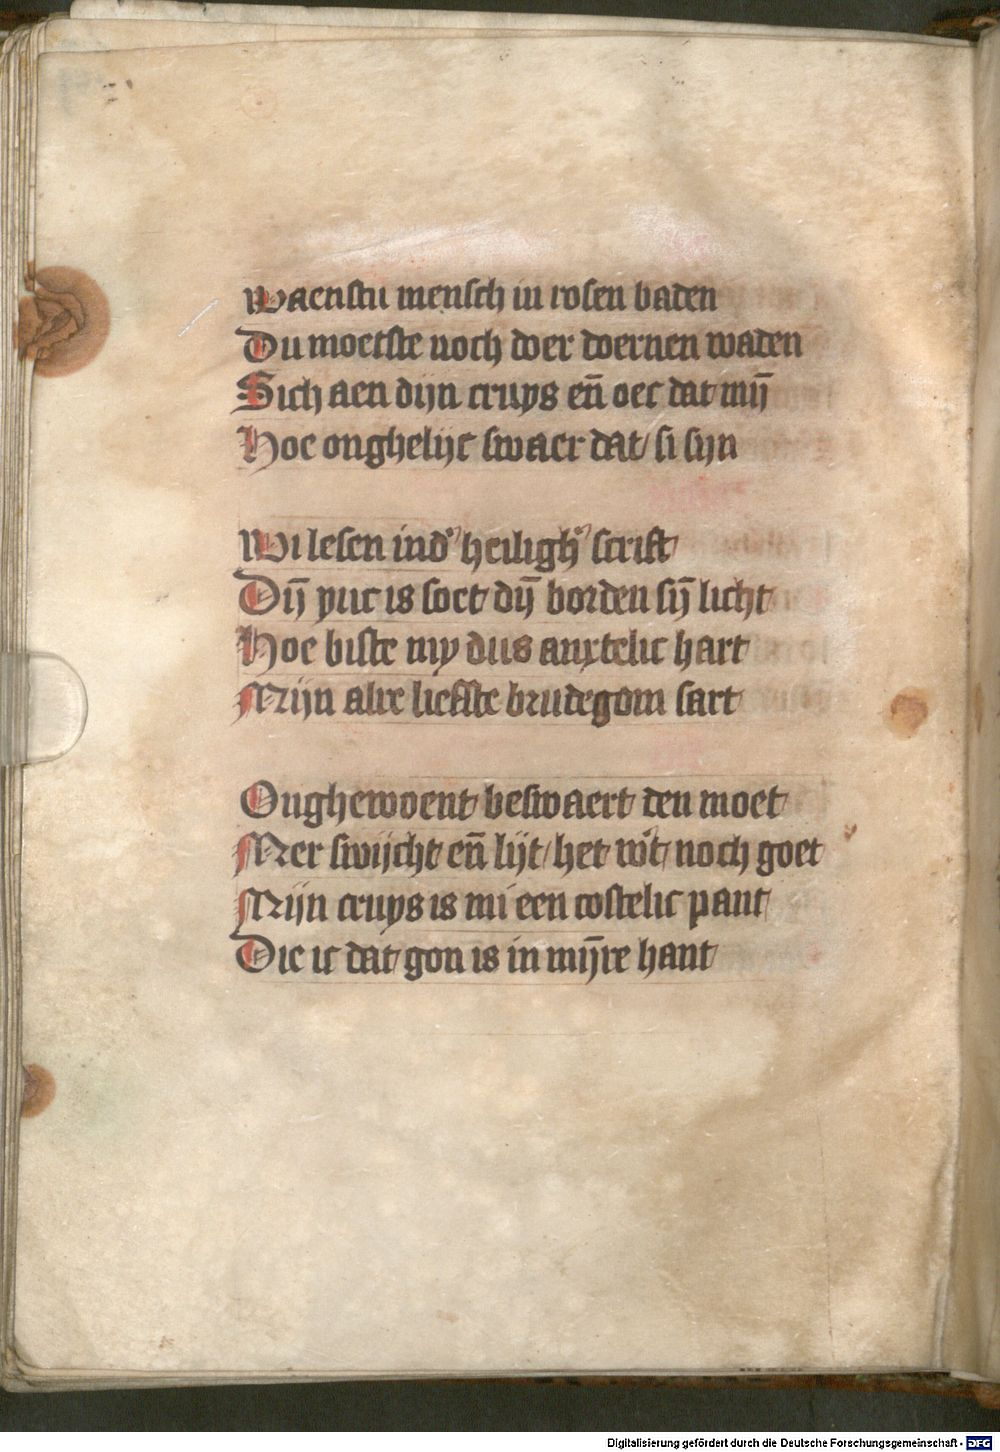 Waenstu mensch in rosen baden
Du moetste noch doer doernen waden
Sich aen dijn cruys en̄ oec dat mij̄
Hoe onghelijc swaer dat si sijn
Wi lesen in dͦ heilighͦ scrift
Dij̄ yuc is soet dij̄ borden sij̄ licht
Hoe biste my dus anxtelic hart
Mijn alre liefste brudegom sart
Onghewoent beswaert den moet
Mer swijcht en̄ lijt het wͭt noch goet
Mijn cruys is mi een costelic pant
Die ic dat gon is in mij̄re hant
Digitalisierung gefördert durch die Deutsche Forschungsgemeinschaft - DFG